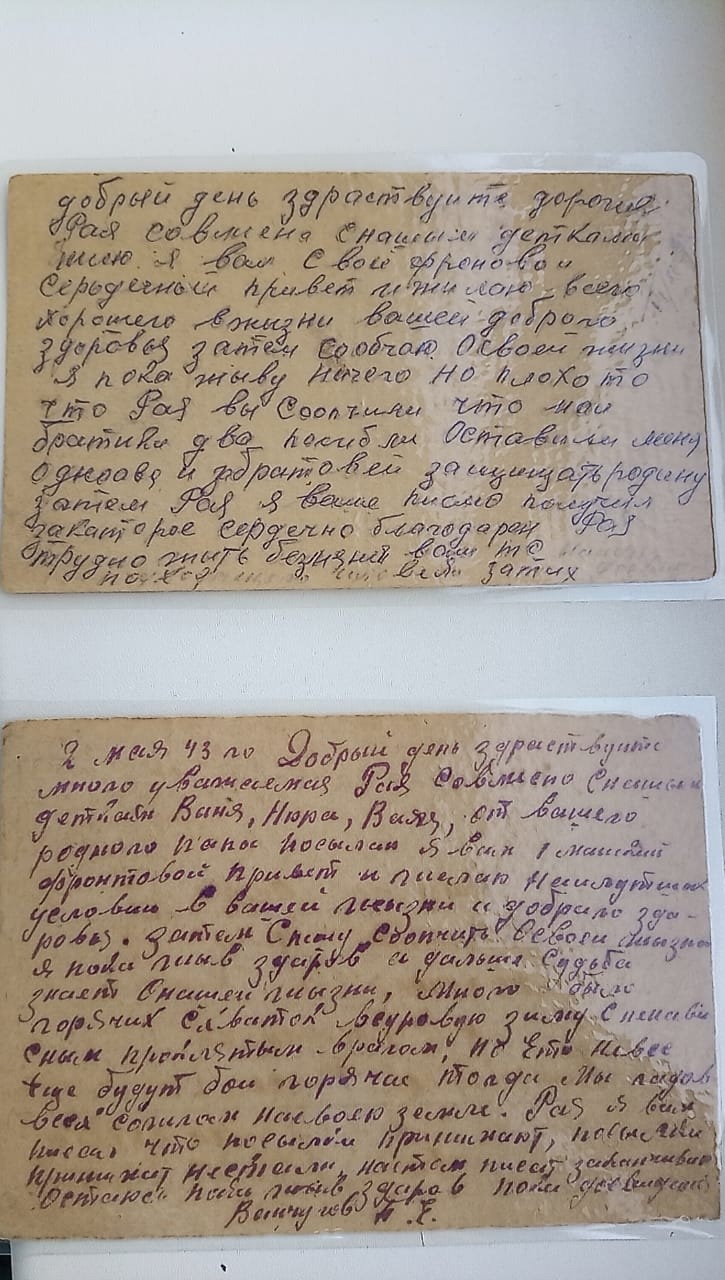 добрый день здраствуите дорогия
Рая совмена снашими детками
шлю я вам свой фроновои
сердечный привет и жилаю всего
хорошего вжизни вашей доброго
здоровья затем сообчаю Освоей жизни
Я пока жыву ничего но плохо то
что Рая вы сообчили что маи
братики два погибли Оставили меня
одново и забратовей защищать родину
затем Рая я ваше писмо получил
закаторое сердечно благодарен Рая
трудно жить
затих
2 мая 43 го Добрый день здраствуите
много уважаемая Рая Совмесно Снашими
детками Ваня, Нюра, Валя, от вашего
родного папа посылаю я вам 1 майский
фронтовой привет и жилаю Наилутших
условии в вашей жызни и доброго здо-
ровья. Затем Спешу сообчить Освоей жизни
я пока жыв здаров а дальше судьба
знает Онашей жызни, Много было
горячих схваток всуровую зиму Сненави
сным проклятым врагом, но Это невсе
Еще будут бои горячие тогда Мы
земле. Рая я вам
писал что посылки принимают, посылки
писат заканчиваю
Остаюсь пока жыв здаров пока досвидания